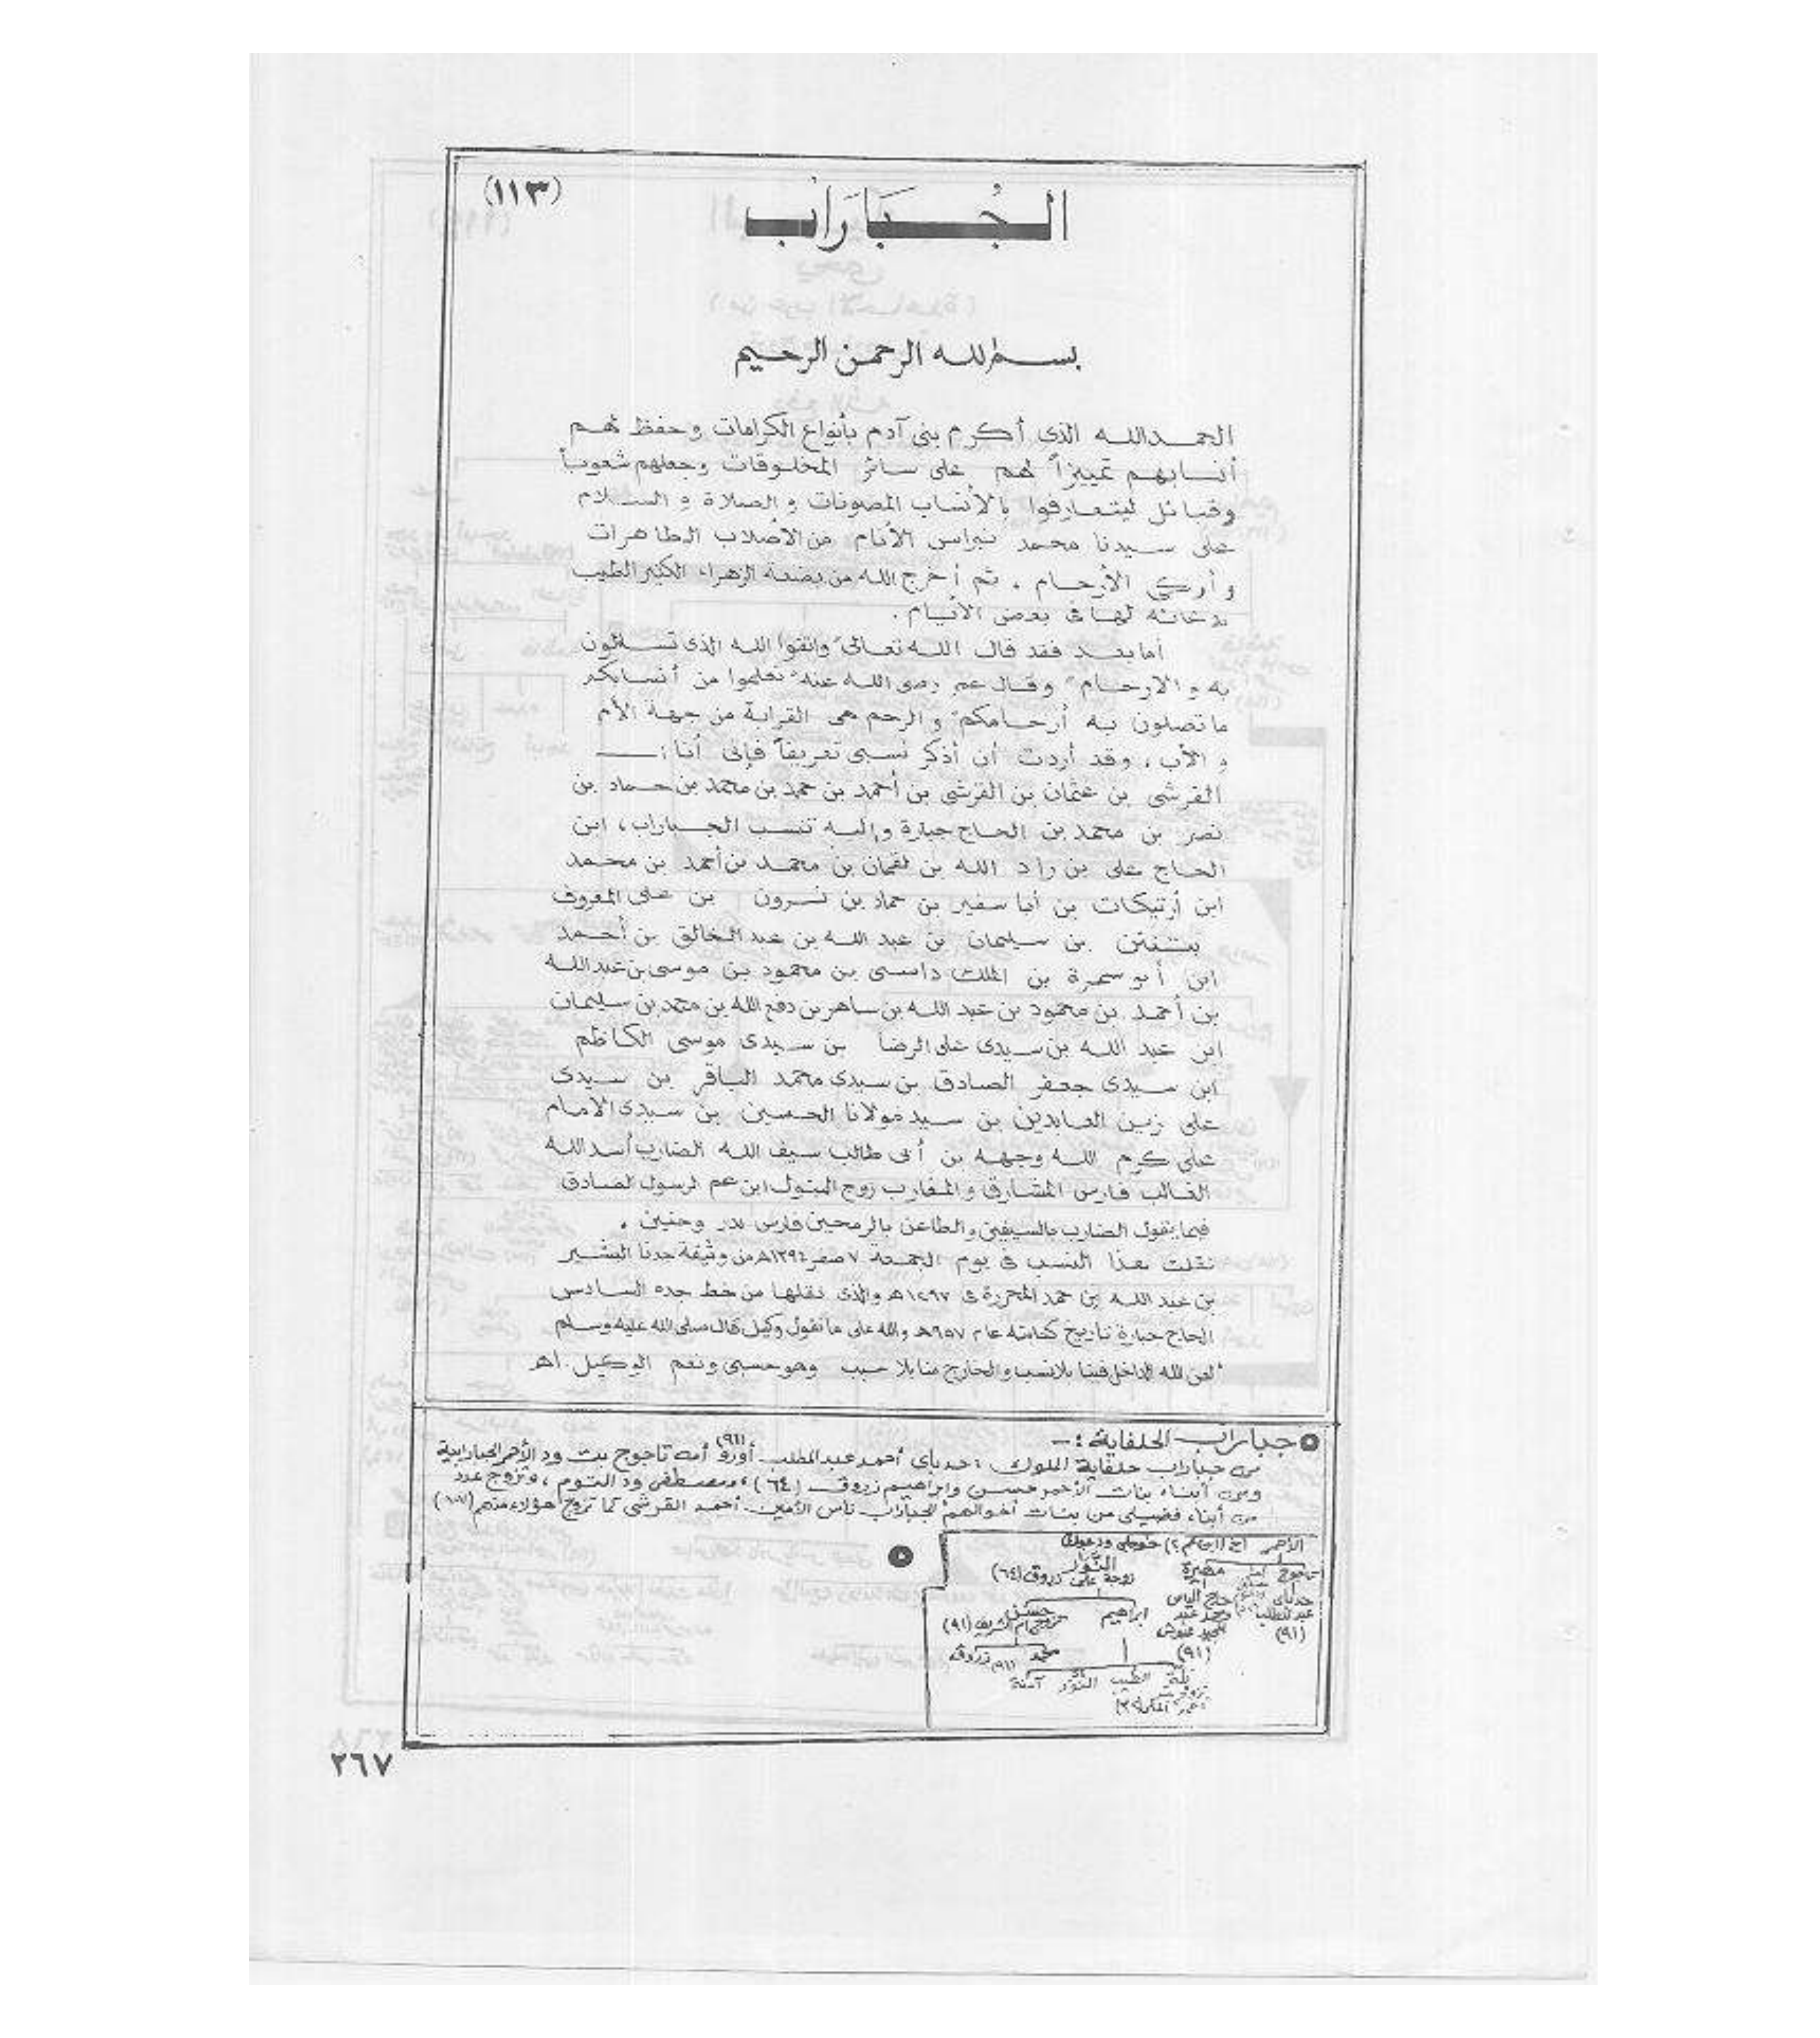 (١١٣)
الجُبَارَاب
بسم الله الرحمن الرحيم
الحمد لله الذى أكرم بنى آدم بأنواع الكرامات وحفظ لهم
أنسابهم تمييزاً لهم على سائر المخلوقات وجعلهم شعوباً
وقبائل ليتعارفوا بالأنساب المصونات والصلاة والسلام
على سيدنا محمد نبراس الأنام من الأصلاب الطاهرات
وأزكى الأرحام . ثم أخرج الله من بضعة الزهراء الكثير الطيب
بدعائه لها فى بعض الأيام .
أما بعد فقد قال الله تعالى "واتقوا الله الذى تساءلون
به والأرحام" وقال عمر رضى الله عنه "تعلموا من أنسابكم
ما تصلون به أرحامكم" والرحم هى القرابة من جهة الأم
والأب ، وقد أردت أن أذكر نسبى تعريفاً فإنى أنا :ــ
القرشى بن عثمان بن القرشى بن أحمد بن حمد بن محمد بن حماد بن
نصر بن محمد بن الحاج جبارة وإليه تنسب الجباراب ، ابن
الحاج على بن راد الله بن لقمان بن محمد بن أحمد بن محمد
ابن أرتيكات بن أبا سفير بن حماد بن نسرون بن على المعروف
بتنتن بن سليمان بن عبد الله بن عبد الخالق بن أحمد
ابن أبو سمرة بن الملك داسى بن محمود بن موسى بن عبد الله
بن أحمد بن محمود بن عبد الله بن ساهر بن دفع الله بن محمد بن سليمان
ابن عبد الله بن سيدى على الرضا بن سيدى موسى الكاظم
ابن سيدى جعفر الصادق بن سيدى محمد الباقر بن سيدى
على زين العابدين بن سيد مولانا الحسين بن سيدى الامام
على كرم الله وجهه بن أبى طالب سيف الله الضارب أسد الله
الغالب فارس المشارق والمغارب زوج البتول ابن عم الرسول الصادق
فيما يقول الضارب بالسيفين والطاعن بالرمحين فارس بدر وحنين .
نقلت هذا النسب فى يوم الجمعة ٧ صفر ١٣٩٤هـ من وثيقة جدنا البشير
بن عبد الله بن حمد المحررة فى ١٢٩٧هـ والذى نقلها من خط جده السادس
الحاج جبارة تاريخ كتابته عام ٩٥٧هـ والله على ما نقول وكيل قال صلى الله عليه وسلم
"لعن الله الداخل فينا بلا نسب والخارج منا بلا سبب وهو حسبى ونعم الوكيل . اهـ
جباراب الحلفاية :ــ
من جباراب حلفاية الملوك : حدباى أحمد عبد المطلب أورو (٩١) أمه تاجوج بت ود الأحمر الجبارابية
ومن أبناء بنات الأحمر حسن وابراهيم زروق (٦٤) ، ومصطفى ود التوم ، وتزوج عدد
من أبناء فضيلى من بنات أخوالهم الجباراب ناس الأمين أحمد القرشى كما تزوج هؤلاء منهم
الأحمر
النَّوَّار
زوجة على زروق (٦٤)
تاجوج
مهيرة
حدباى
عبد المطلب
(٩١)
حاج الياس
(٩١)
حسن
ابراهيم
(٩١)
محمد
زروق
الطيب
النوَّار
آمنة
٢٦٧